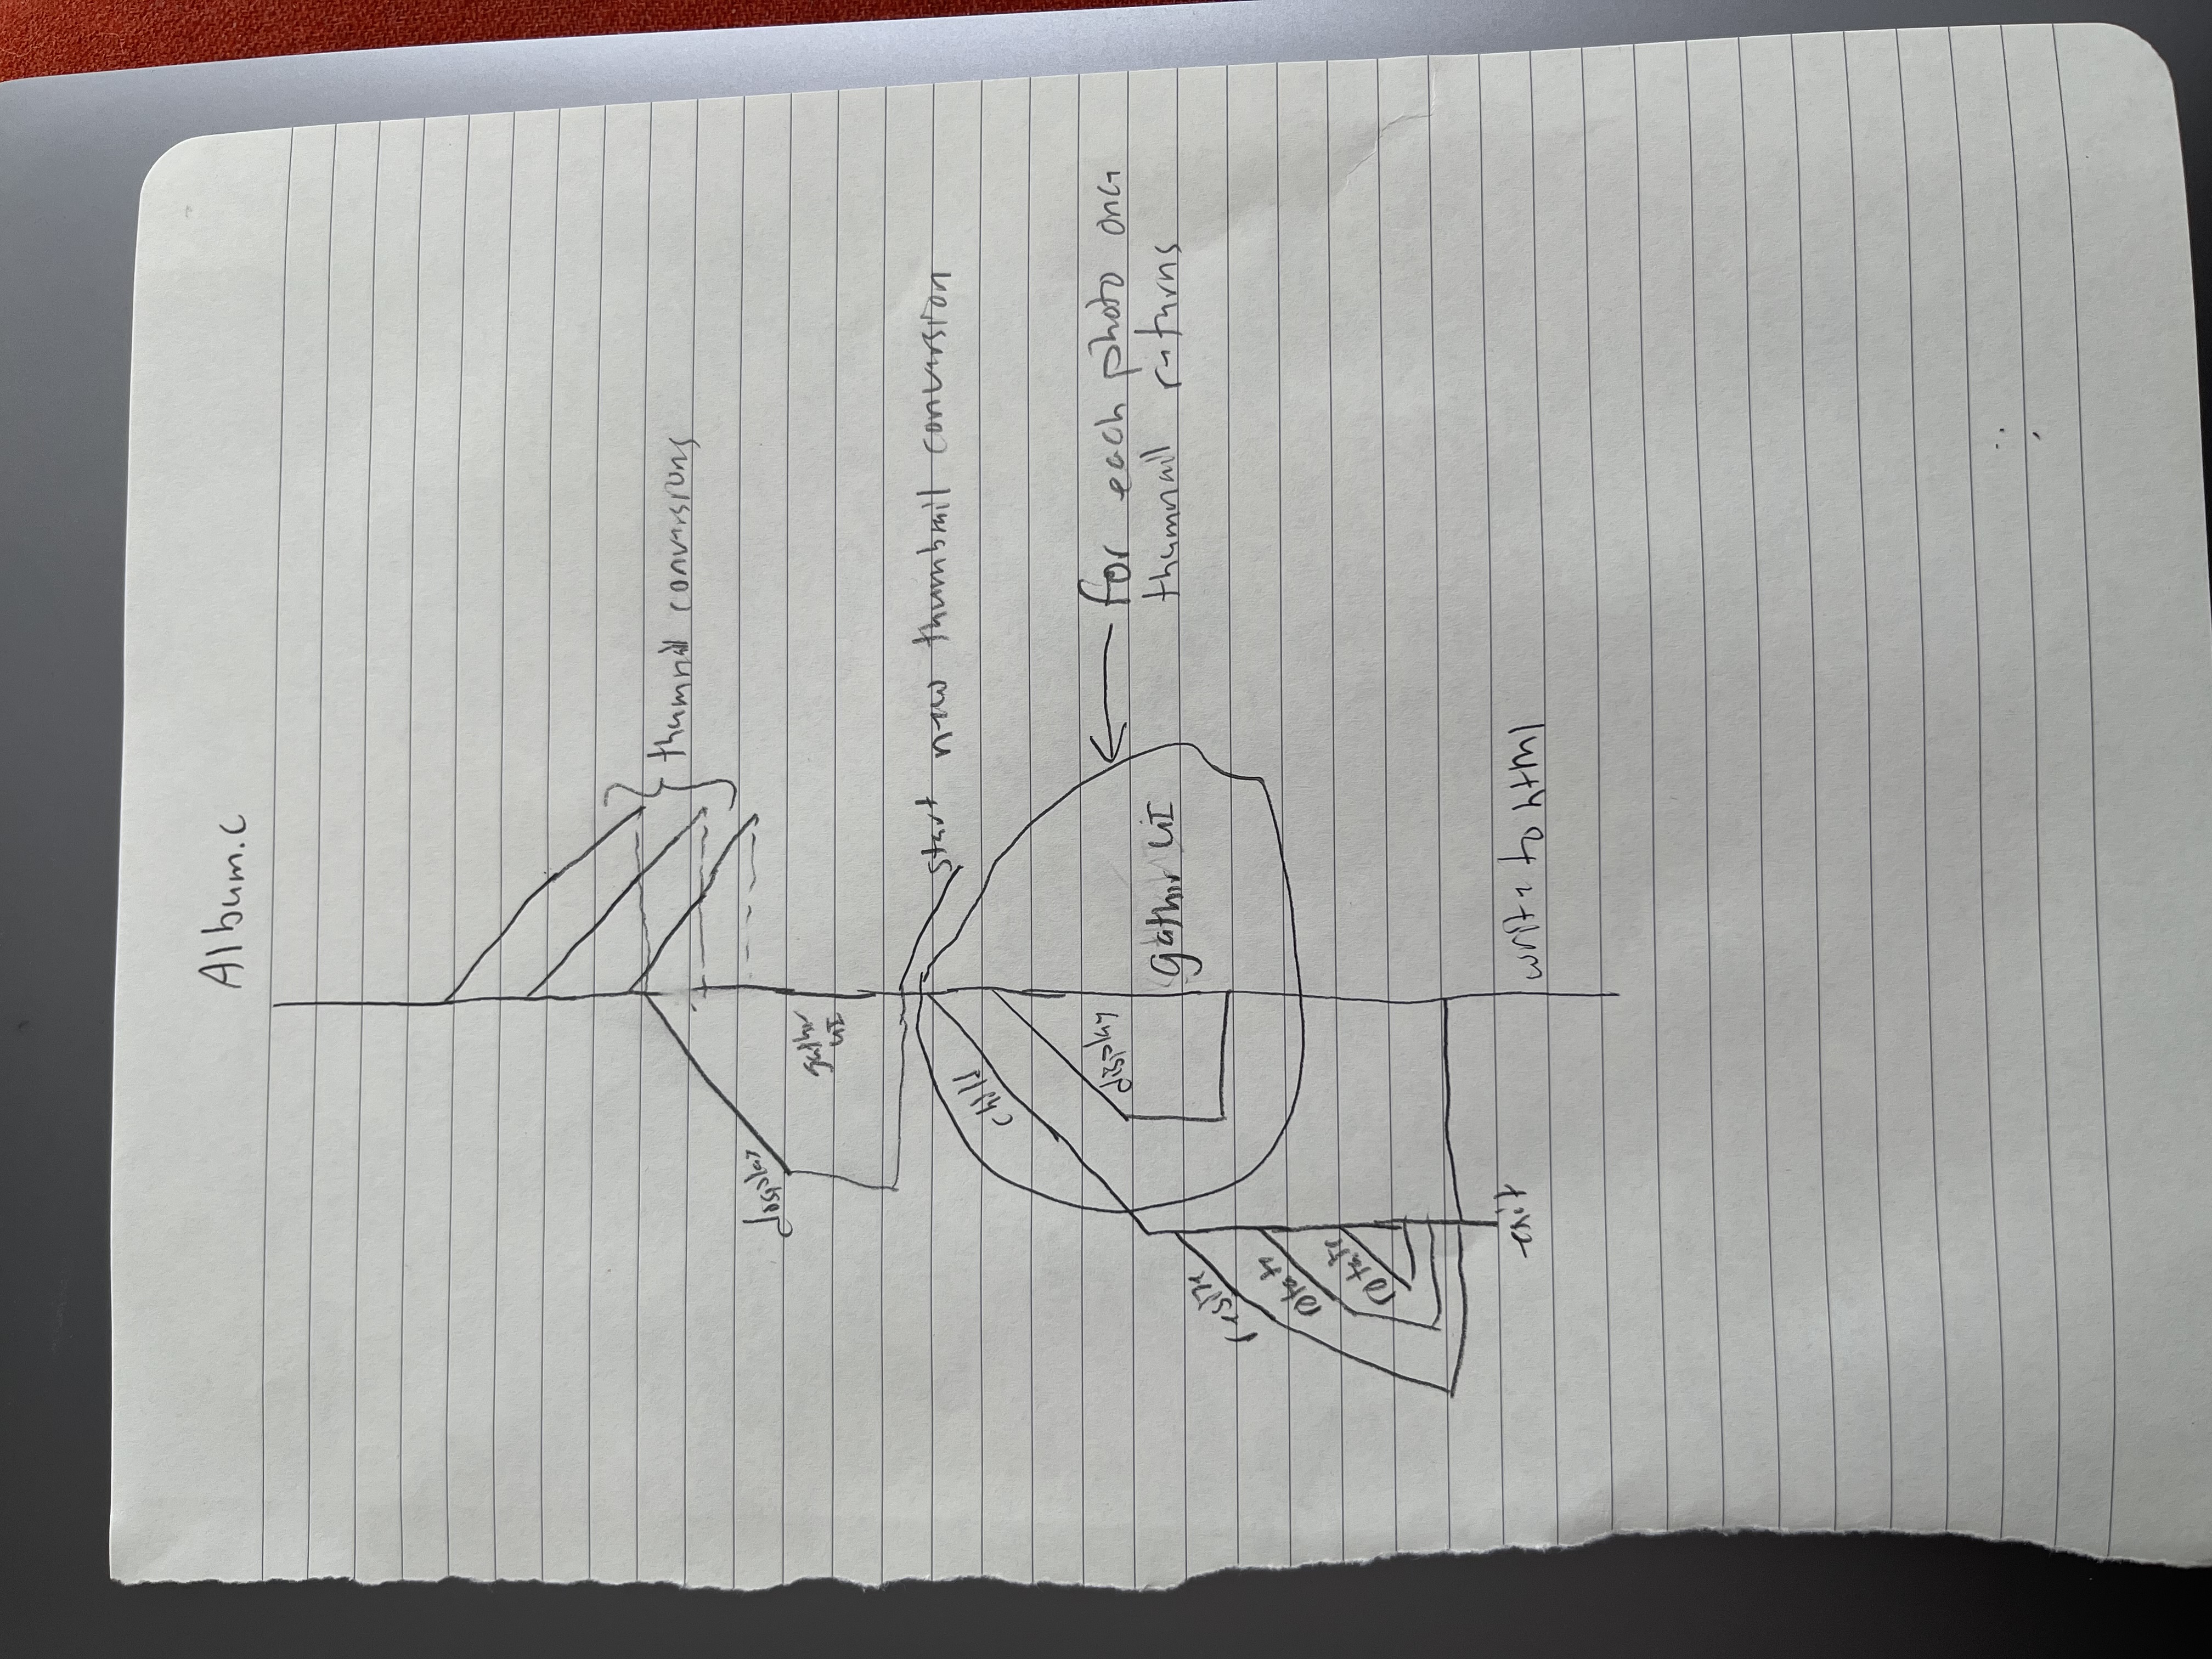 Album.c
thumnail conversions
display
gather
UI
start new thumbnail conversion
child
display
for each photo once
thumnail returns
gather UI
resize
rotate
rotate
exit
write to html